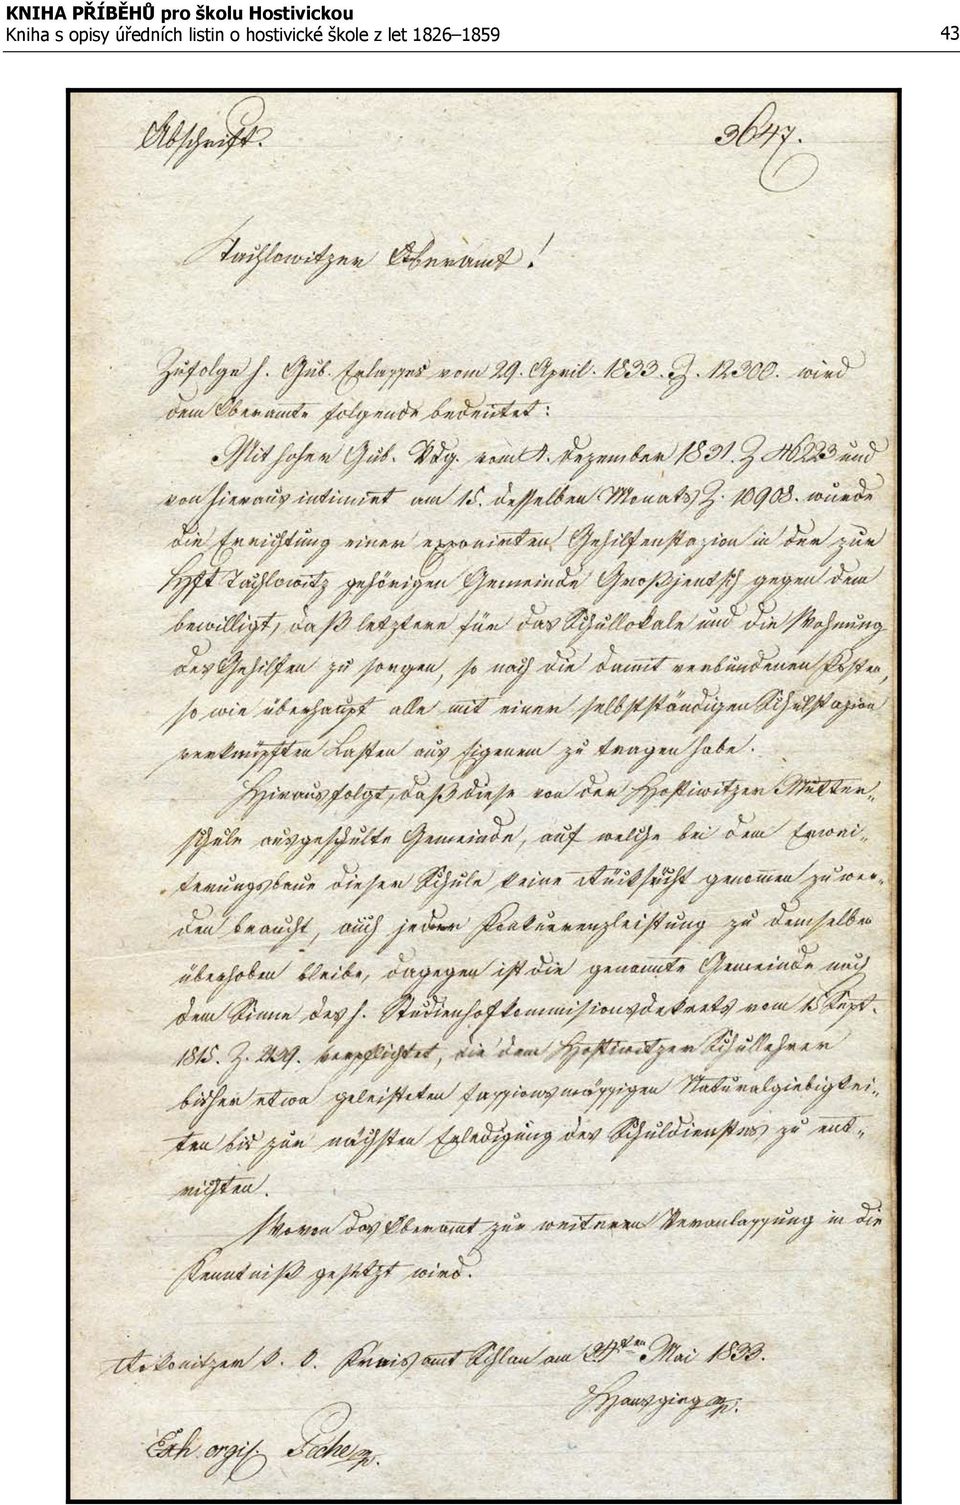 KNIHA PŘÍBĚHŮ pro školu Hostivickou
Kniha s opisy úředních listin o hostivické škole z let 1826–1859 43
Abschrift. 3647.
Tachlowitzer Oberamt!
Zufolge h. Gub. Erlasses vom 29. April. 1833. Z. 12300. wird
dem Oberamte folgende bedeutet:
Mit hoher Gub. Vdg. vom 1. Dezember 1831. Z 46223 und
von hieraus intimirt am 15. desselben Monats Z. 10908. wurde
die Errichtung einer exponirten Gehilfenstazion in der zur
Hft Tachlowitz gehörigen Gemeinde Großjentsch gegen dem
bewilligt, daß letztere für das Schullokale und die Wohnung
des Gehilfen zu sorgen, so nach die damit verbundenen Kosten,
so wie überhaupt alle mit einer selbstständigen Schulstazion
verknüpften Lasten aus Eigenem zu tragen habe.
Hieraus folgt, daß diese von der Hostiwitzer Mutter„
schule ausgeschulte Gemeinde, auf welche bei dem Erwei„
terungsbaue dieser Schule keine Rücksicht genommen zu wer„
den braucht, auch jeder Konkurrenzleistung zu demselben
überhoben bleibe, dagegen ist die genannte Gemeinde nach
dem Sinne des h. Studienhofkommissionsdekrets vom 15 Sept.
1815. Z. verpflichtet, die dem Hostiwitzer Schullehrer
bisher etwa geleisteten fassionsmässigen Naturalgiebigkei„
ten bis zur nächsten Erledigung des Schuldienstes zu ent„
richten.
Wovon das Oberamt zur weiteren Veranlassung in die
Kenntniß gesetzt wird.
Rakonitzer k. k. Kreisamt Schlan am 24ten Mai 1833.
Hansgirg mp.
Exh. orgis.